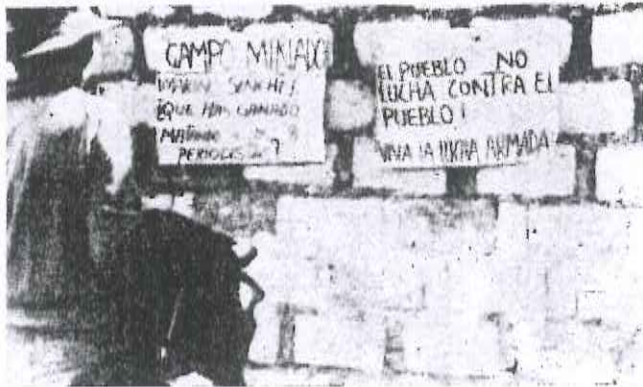 CAMPO MINADO
SINCHI!
¿QUE HAS GANADO
MATANDO
PERIODISTAS?
EL PUEBLO NO
LUCHA CONTRA EL
PUEBLO!
VIVA LA LUCHA ARMADA